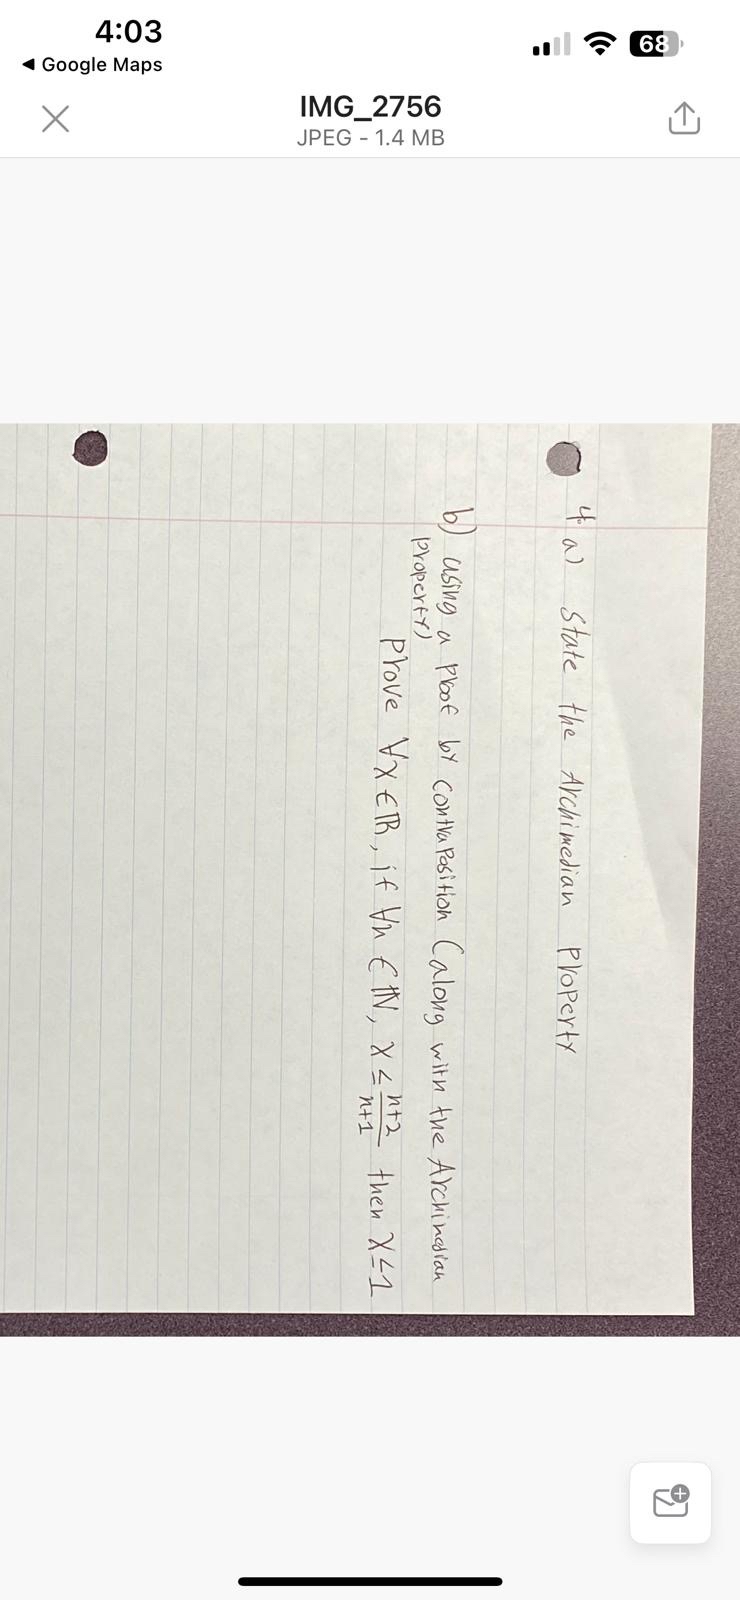 4:03
68
◀ Google Maps
IMG_2756
JPEG - 1.4 MB
4. a) State the Archimedian Property
b) using a proof by contraposition (along with the Archimedian
property)
Prove ∀x ∈ ℝ, if ∀n ∈ ℕ, x ≤ n+2/n+1 then x ≤ 1